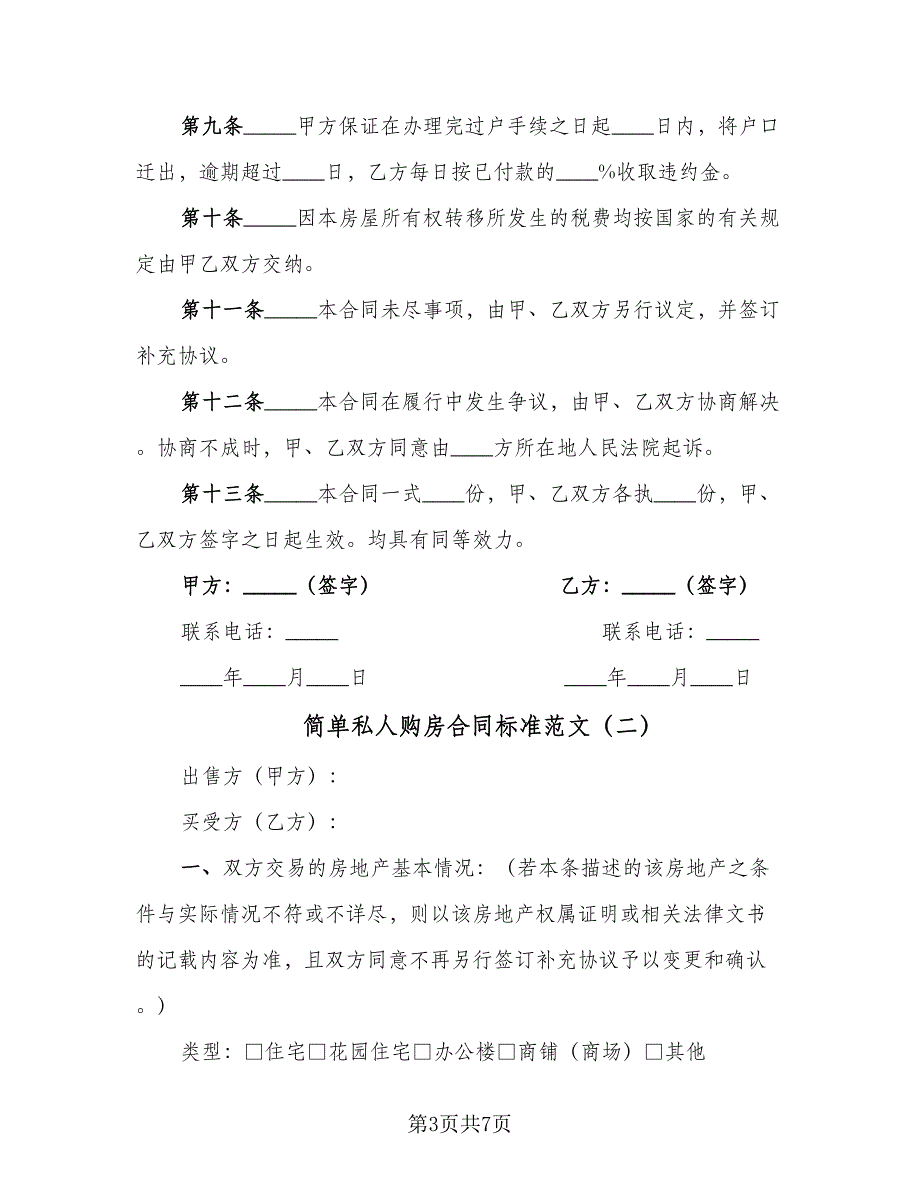 第九条_____甲方保证在办理完过户手续之日起____日内，将户口
迁出，逾期超过____日，乙方每日按已付款的____%收取违约金。
第十条_____因本房屋所有权转移所发生的税费均按国家的有关规
定由甲乙双方交纳。
第十一条_____本合同未尽事项，由甲、乙双方另行议定，并签订
补充协议。
第十二条_____本合同在履行中发生争议，由甲、乙双方协商解决
。协商不成时，甲、乙双方同意由____方所在地人民法院起诉。
第十三条_____本合同一式____份，甲、乙双方各执____份，甲、
乙双方签字之日起生效。均具有同等效力。
甲方：_____（签字） 乙方：_____（签字）
联系电话：_____ 联系电话：_____
____年____月____日 ____年____月____日
简单私人购房合同标准范文（二）
出售方（甲方）：
买受方（乙方）：
一、双方交易的房地产基本情况：（若本条描述的该房地产之条
件与实际情况不符或不详尽，则以该房地产权属证明或相关法律文书
的记载内容为准，且双方同意不再另行签订补充协议予以变更和确认
。）
类型：□住宅□花园住宅□办公楼□商铺（商场）□其他
第3页共7页